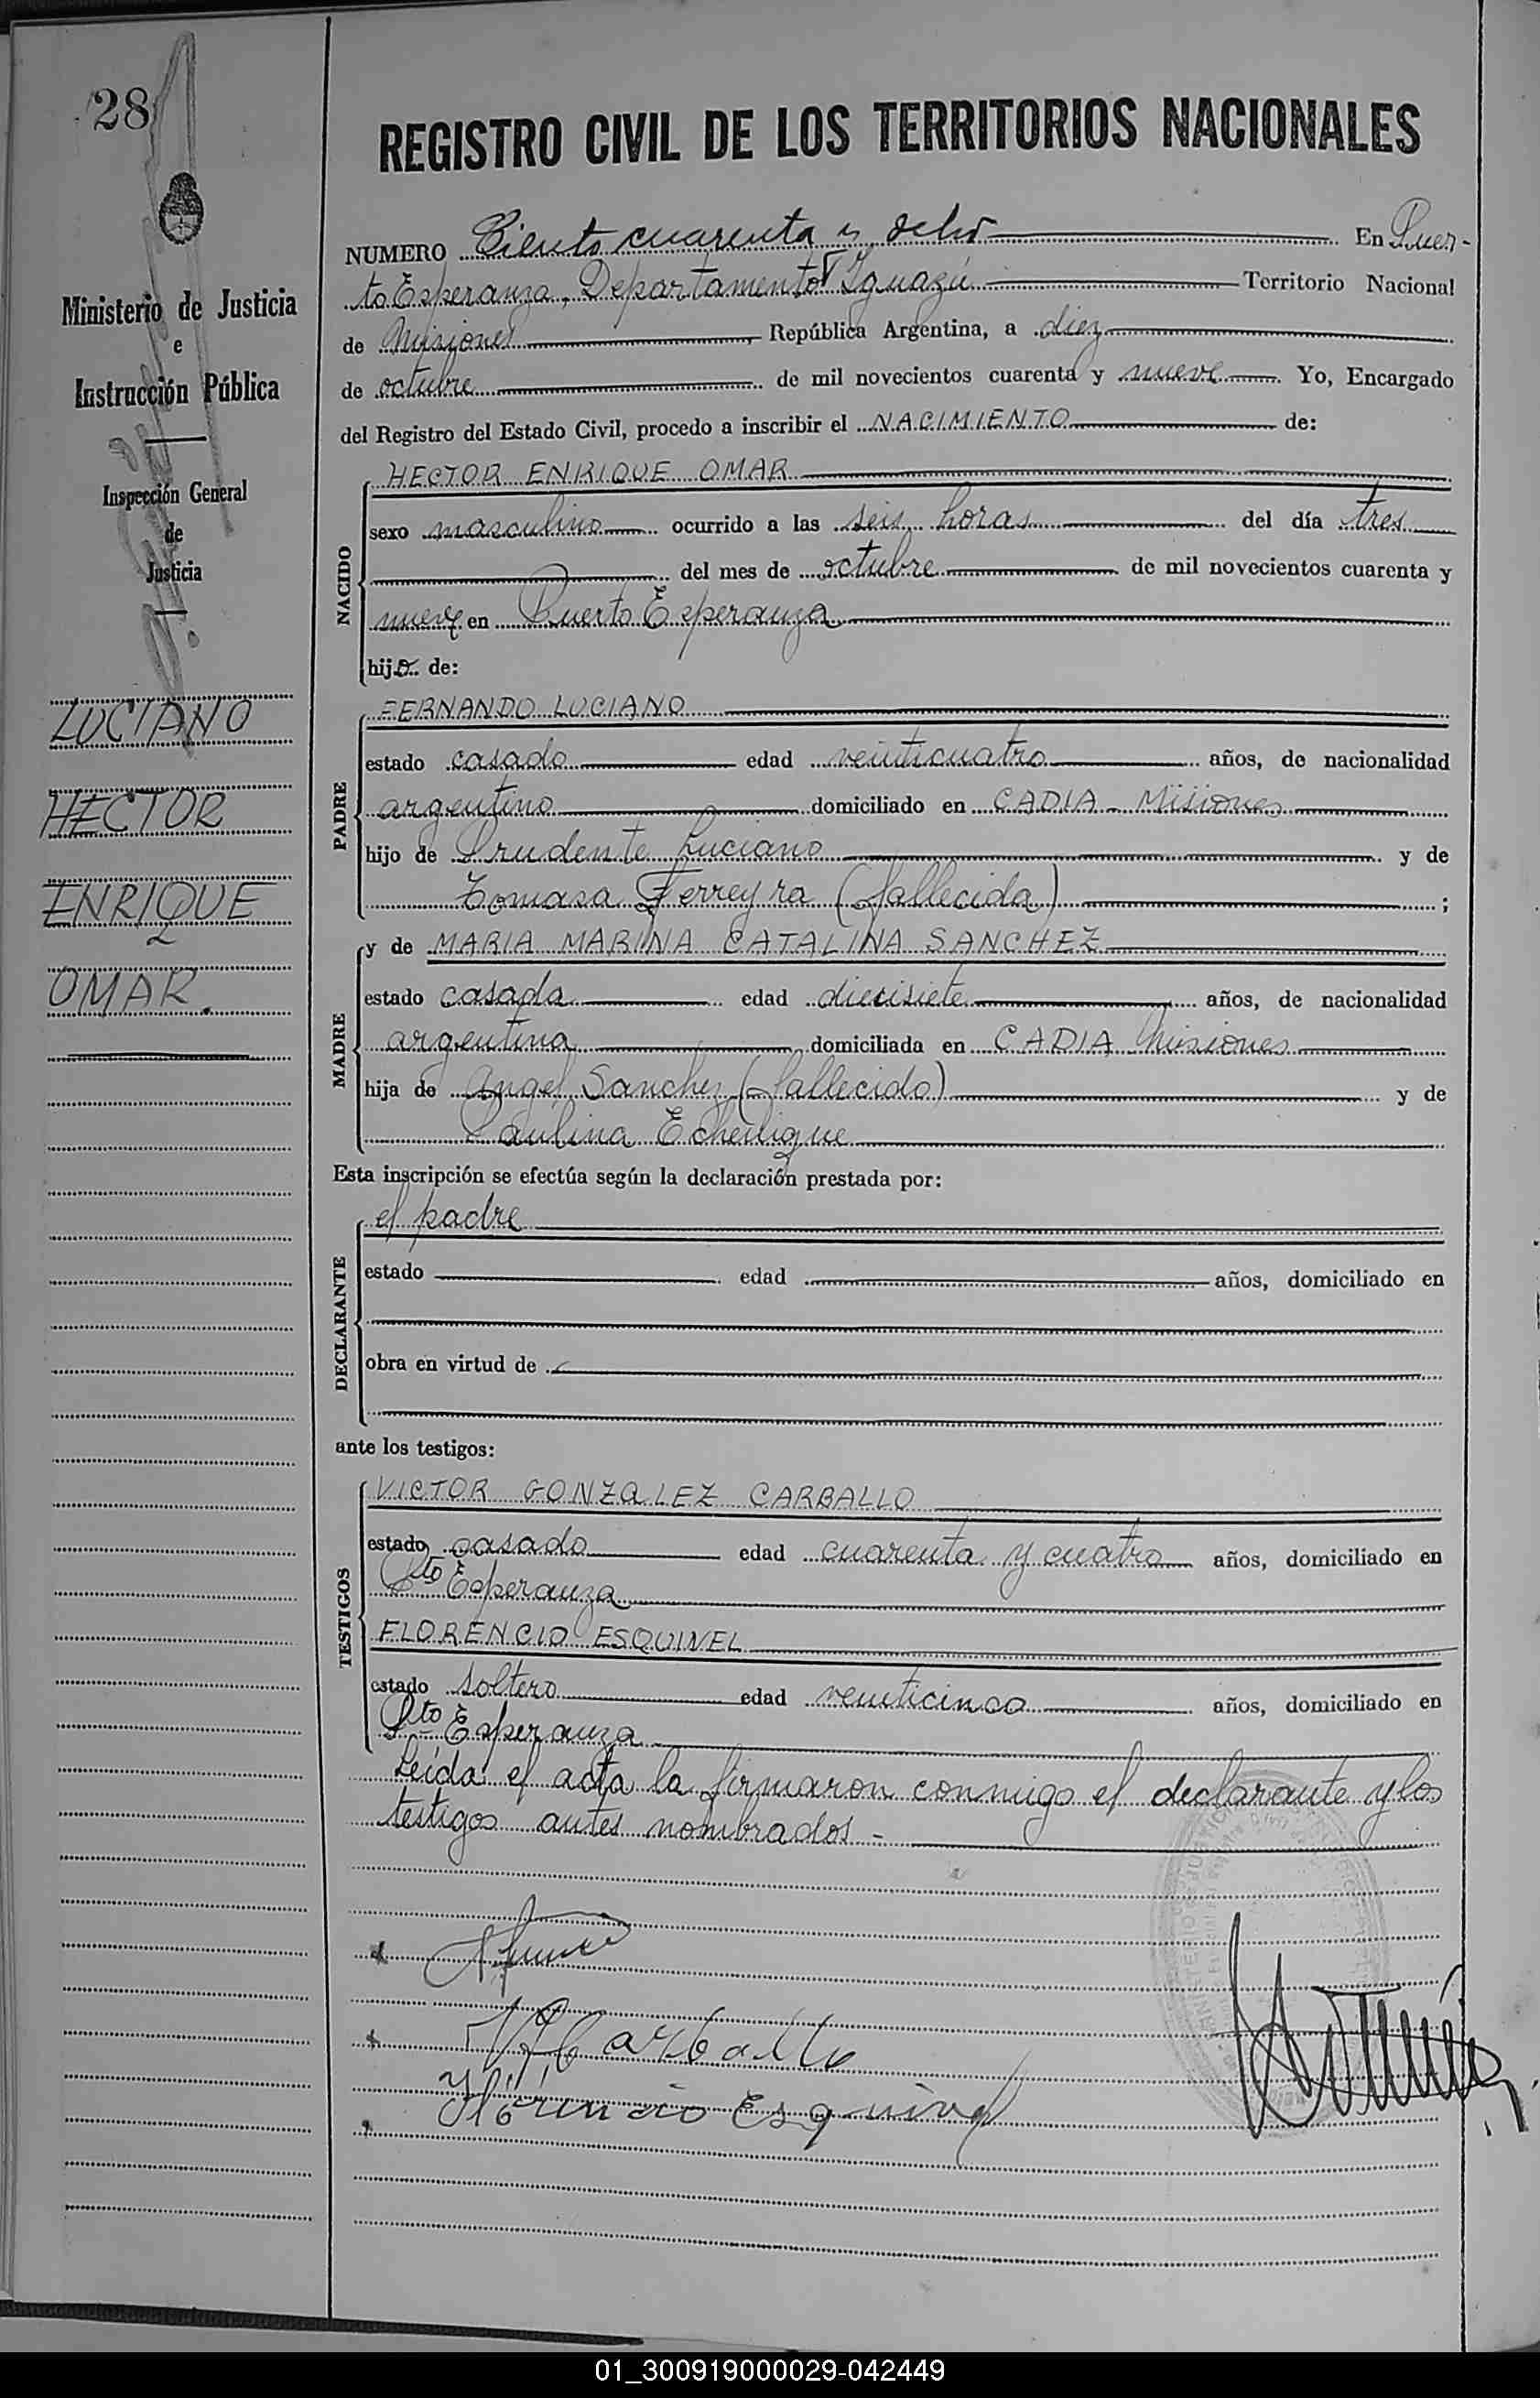 28
REGISTRO CIVIL DE LOS TERRITORIOS NACIONALES
Ministerio de Justicia
e
Instrucción Pública
Inspección General
de
Justicia
LUCIANO
HECTOR
ENRIQUE
OMAR.
NUMERO Ciento cuarenta y ocho En Puer-
to Esperanza, Departamento Iguazú Territorio Nacional
de Misiones, República Argentina, a diez
de octubre de mil novecientos cuarenta y nueve Yo, Encargado
del Registro del Estado Civil, procedo a inscribir el NACIMIENTO de:
NACIDO
HECTOR ENRIQUE OMAR
sexo masculino ocurrido a las seis horas del día tres
del mes de octubre de mil novecientos cuarenta y
nueve en Puerto Esperanza
hijo de:
PADRE
FERNANDO LUCIANO
estado casado edad veinticuatro años, de nacionalidad
argentino domiciliado en CADIA - Misiones
hijo de Prudente Luciano y de
Tomasa Ferreyra (fallecida) ;
MADRE
y de MARIA MARINA CATALINA SANCHEZ
estado casada edad diecisiete años, de nacionalidad
argentina domiciliada en CADIA Misiones
hija de Angel Sanchez (fallecido) y de
Paulina Echerique
Esta inscripción se efectúa según la declaración prestada por:
DECLARANTE
el padre
estado edad años, domiciliado en
obra en virtud de
ante los testigos:
TESTIGOS
VICTOR GONZALEZ CARBALLO
estado casado edad cuarenta y cuatro años, domiciliado en
Pto Esperanza
FLORENCIO ESQUIVEL
estado soltero edad veinticinco años, domiciliado en
Pto Esperanza
Leída el acta la firmaron conmigo el declarante y los
testigos antes nombrados -
VG Carballo
Florencio Esquivel
01_300919000029-042449